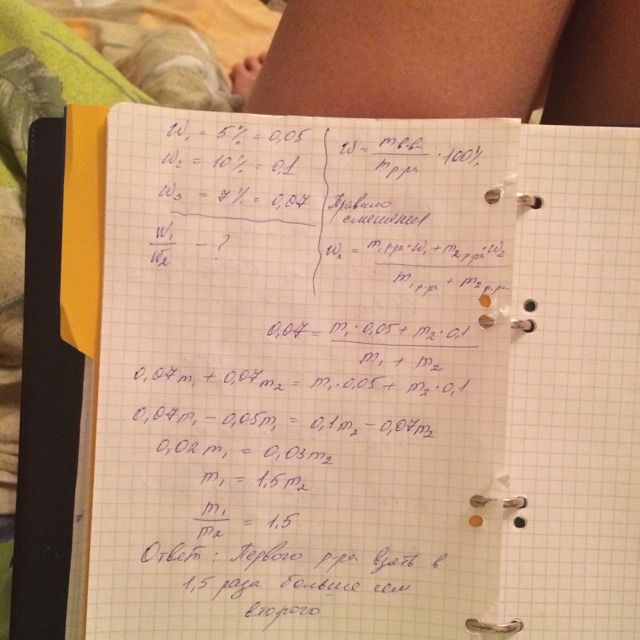 W₁ = 5% = 0,05
W₂ = 10% = 0,1
W₃ = 7% = 0,07
W₁/W₂ - ?
W = mв.в/mр.ра · 100%
Правило
смешения
W₃ = m₁р.ра·W₁ + m₂р.ра·W₂ / m₁р.ра + m₂р.ра
0,07 = m₁·0,05 + m₂·0,1 / m₁ + m₂
0,07m₁ + 0,07m₂ = m₁·0,05 + m₂·0,1
0,07m₁ - 0,05m₁ = 0,1m₂ - 0,07m₂
0,02m₁ = 0,03m₂
m₁ = 1,5m₂
m₁/m₂ = 1,5
Ответ: Первого р-ра взять в
1,5 раза больше чем
второго